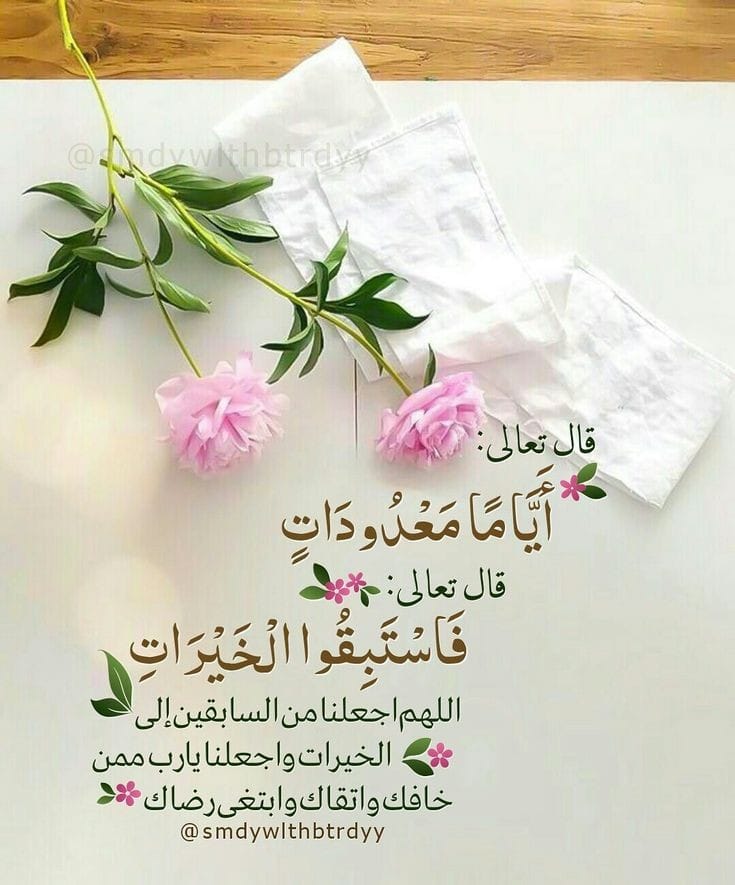 @smdywlthbtrdyy
قال تعالى:
أَيَّامًا مَعْدُودَاتٍ
قال تعالى:
فَاسْتَبِقُوا الْخَيْرَاتِ
اللهم اجعلنا من السابقين إلى
الخيرات واجعلنا يارب ممن
خافك واتقاك وابتغى رضاك
@smdywlthbtrdyy